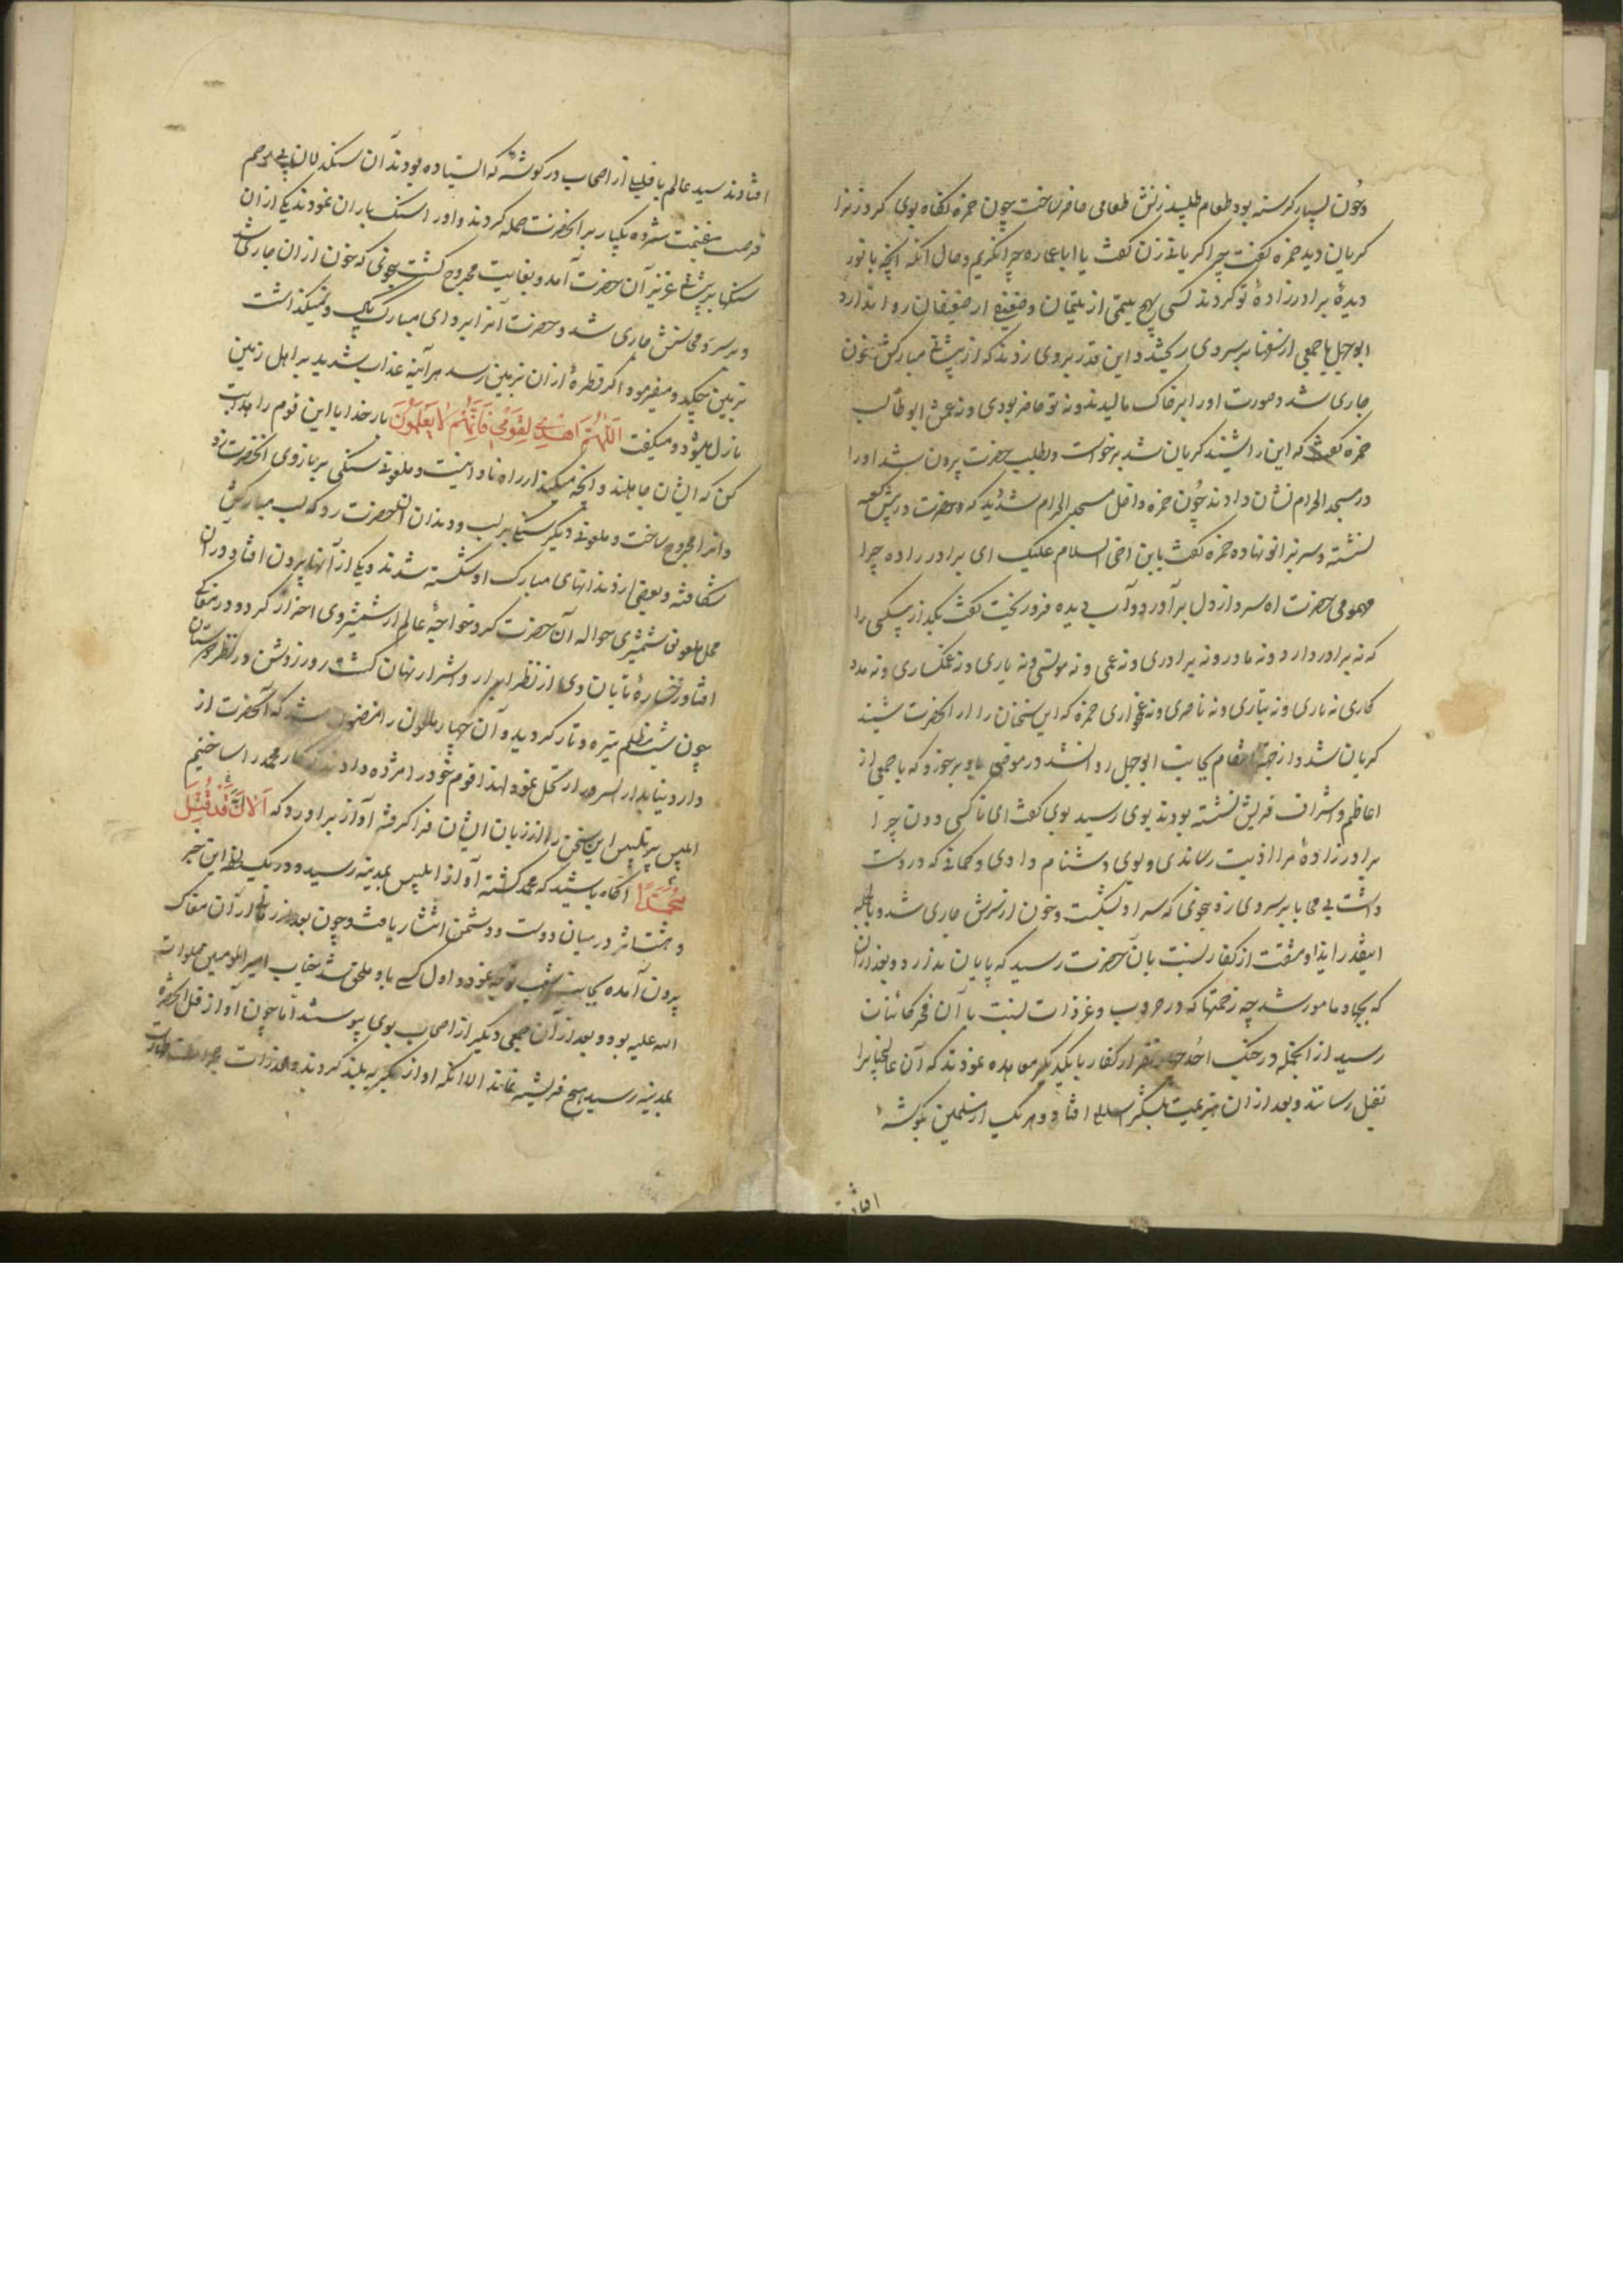 وچون بسیار کرسنه بود طعام طلبید زنش طعامی حاضر ساخت چون حمزه نکاه بوی کرد زنرا
کریان دید حمزه کفت چرا کریانی زن کفت یا ابا عماره چرا نکریم و حال انکه انچه با نور
دیدهٔ برادرزادهٔ تو کردند کسی بهیچ یتیمی از یتیمان و ضعیفی از ضعیفان روا ندارد
ابوجهل با جمعی از سفها بر سر وی ریختند و این قدر بر وی زدند که از پیشانی مبارکش خون
جاری شد و صورت او را بر خاک مالیدند و نه تو حاضر بودی و نه عمش ابوطالب
حمزه که این را شنید کریان شد برخواست و بطلب حضرت بیرون شد او را
در مسجد الحرام نشان دادند چون حمزه داخل مسجد الحرام شد دید که حضرت در پیش کعبه
نشسته و سر بزانو نهاده حمزه کفت یا بن اخی السلام علیک ای برادر زاده چرا
مهمومی حضرت اه سرد از دل برآورد و آب دیده فرو ریخت کفت بکذار بیکسی را
که نه پدر دارد و نه مادر و نه برادری و نه عمی و نه مونسی و نه یاری و نه غمکساری و نه مدد
کاری نه یاری و نه تباری و نه ناصری و نه غمخواری حمزه که این سخنان را از انحضرت شنید
کریان شد و از جهة انتقام بجانب ابوجهل روان شد در موقعی باو برخورد که با جمعی از
اعاظم و اشراف قریش نشسته بودند بوی رسید بوی کفت ای ناکس دون چرا
برادرزادهٔ مرا اذیت رساندی و بوی دشنام دادی و کمانی که در دست
داشت بی محابا بر سر وی زد بنحوی که سر او بشکست و خون از سرش جاری شد و بالجمله
اینقدر ایذا و مشقت از کفار نسبت بان حضرت رسید که پایان ندارد و بعد ازان
که بجهاد مامور شد چه زحمتها که در حروب و غزوات نسبت با آن فخر کائنات
رسید از انجمله در جنک احد چهار نفر از کفار با یکدیکر معاهده نمودند که آن عالیجنابرا
بقتل رسانند و بعد از ان هزیمت بلشکر اسلام افتاد و هر یک از مسلمین بکوشهٔ
افتادند
افتادند سید عالم با قلیلی از اصحاب در کوشهٔ که ایستاده بودند آن سنکدلان بی رحم
فرصت غنیمت شمرده یکبار بر انحضرت حمله کردند و او را سنک باران نمودند یکی از ان
سنکها بر پیشانی عزیز آن حضرت آمد و بغایت مجروح کشت بنحوی که خون از ان جاری شد
و بر سر و محاسنش جاری شد و حضرت آنرا بردای مبارک پاک و نمیکذاشت
بر زمین چکد و میفرمود اکر قطرهٔ از ان بر زمین رسد هر آینه عذاب شدید بر اهل زمین
نازل میشود و میکفت اَللّٰهُمَّ اهْدِ لِقَوْمِی فَاِنَّهُمْ لاٰ یَعْلَمُونَ بار خدایا این قوم را هدایت
کن که ایشان جاهلند و آنچه میکنند از راه نادانیست و ملعونی سنکی بر بازوی انحضرت زد
و انرا مجروح ساخت و ملعونی دیکر سنکی بر لب و دندان انحضرت زد که لب مبارکش
شکافته و بعضی از دندانهای مبارک او شکسته شدند و یکی از آنها بیرون افتاد و در آن
محل ملعونی شمشیری حواله آن حضرت کرد خواجهٔ عالم از شمشیر وی احتراز کرد و در مغاکی
افتاد رخسارهٔ تابان وی از نظر ابرار و اشرار نهان کشت و روز روشن در نظر دوستان
چون شب مظلم تیره و تار کردید و آن چهار ملعون را مظنون شد که آنحضرت از
دار دنیا بدار السرور ارتحال نمود لهذا قوم خود را مژده دادند که کار محمد را ساختیم
ابلیس پر تلبیس این سخن را از زبان ایشان فرا کرفته آواز براورد که اَلاٰ اِنَّ قَدْ قُتِلَ
مُحَمَّدٌ آکاه باشید که محمد کشته آواز ابلیس بمدینه رسید و در یک لحظه این خبر
وحشت اثر در میان دوست و دشمن انتشار یافت و چون بعد از زمانی از آن مغاک
بیرون آمده بجانب شعب توجه نمود و اول کسی که باو ملحق شد جناب امیر المومنین صلوات
الله علیه بود و بعد از آن جمعی دیکر از اصحاب بوی پیوستند اما چون آواز قتل انحضرت
بمدینه رسید هیچ قریشیه نماند الا انکه اواز بکریه بلند کردند و مخدرات حجرات طهارت